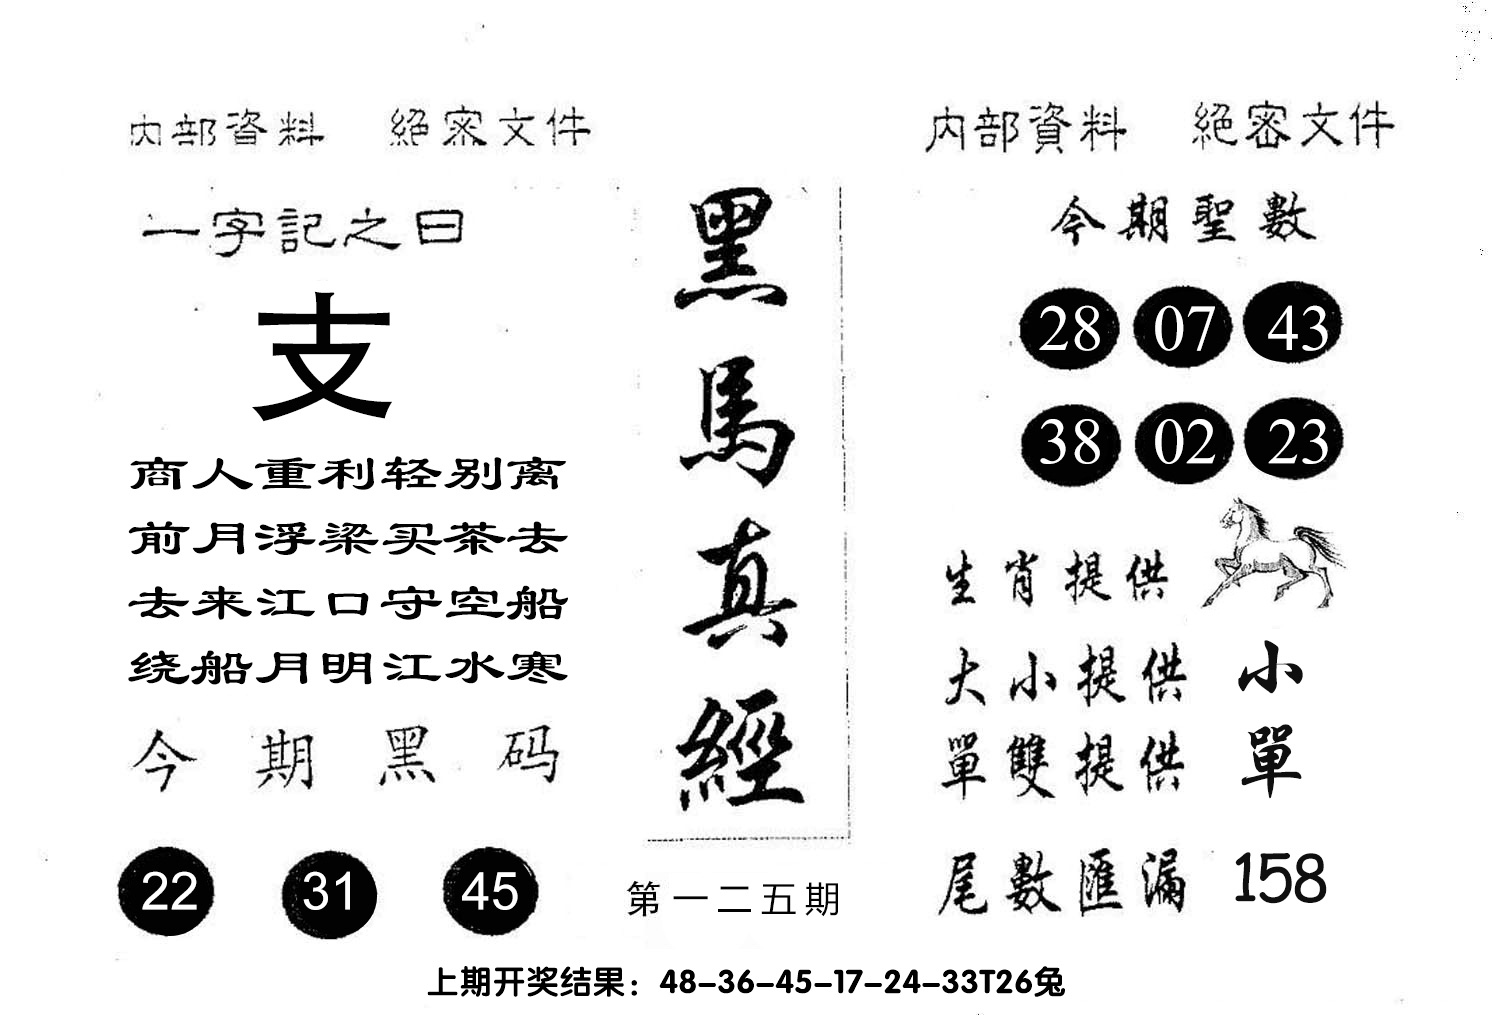 内部資料 絕密文件
一字記之曰
支
商人重利轻别离
前月浮梁买茶去
去来江口守空船
绕船月明江水寒
今期黑码
22 31 45
黑馬真經
第一二五期
内部資料 絕密文件
今期聖數
28 07 43
38 02 23
生肖提供
大小提供 小
單雙提供 單
尾數匯漏 158
上期开奖结果：48-36-45-17-24-33T26兔